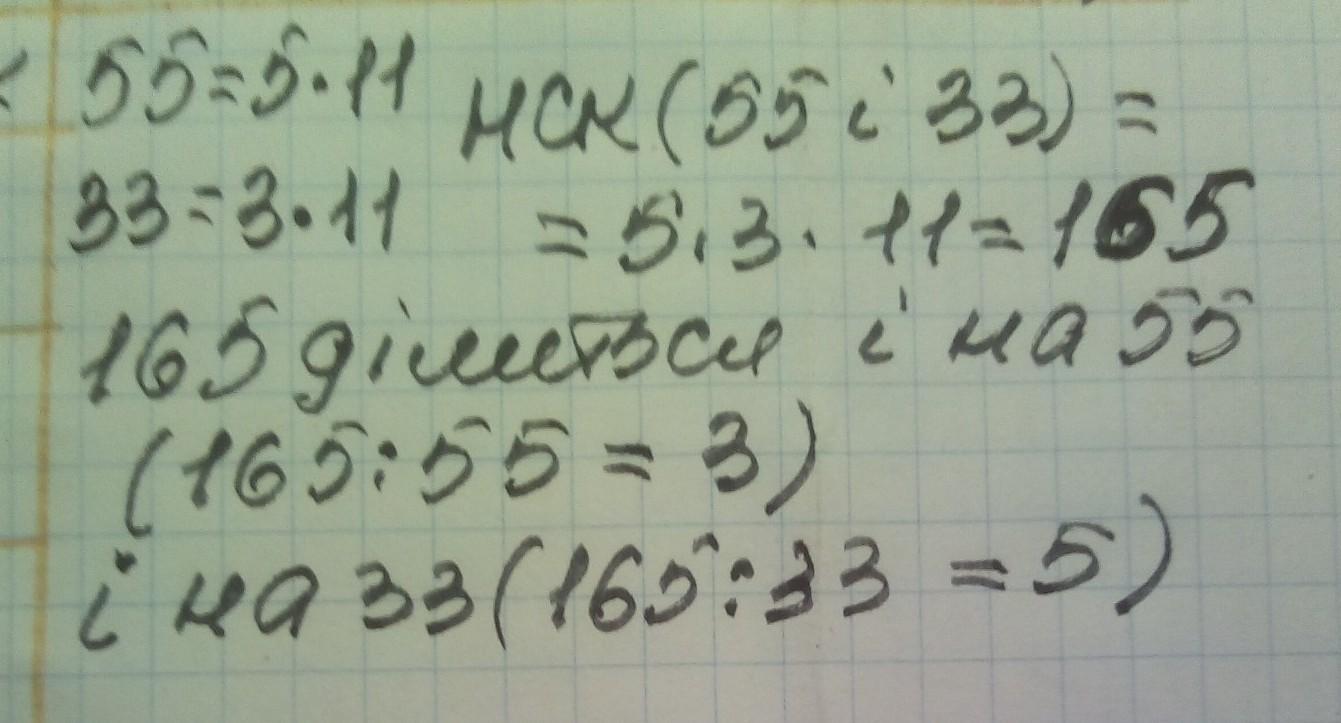 55=5·11 НСК(55 і 33)=
33=3·11 =5·3·11=165
165 ділиться і на 55
(165:55=3)
і на 33(165:33=5)